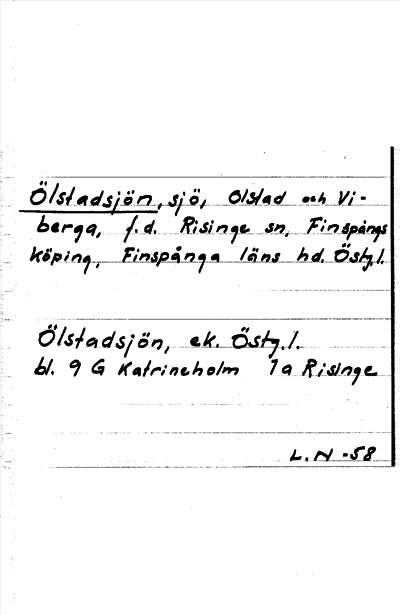 Ölstadsjön, sjö, Ölstad och Vi-
berga, f.d. Risinge sn, Finspångs
köping, Finspånga läns hd. Östg.l.
Ölstadsjön, ek. Östg.l.
bl. 9 G Katrineholm 7a Risinge
L.N -58